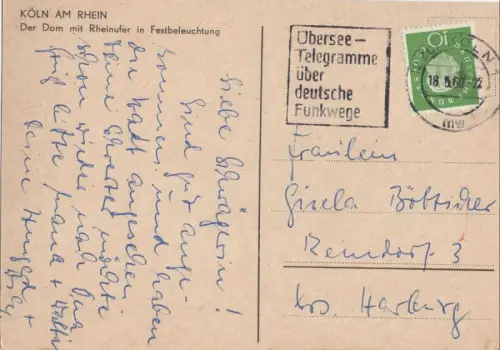 KÖLN AM RHEIN
Der Dom mit Rheinufer in Festbeleuchtung
Liebe Schwägerin!
Sind gut ange-
kommen und haben
die Stadt angesehen.
Deine Schwester möchte
schon wieder nach Haus
Grüß bitte Mama + 
Deine Irmgard +
Übersee-
Telegramme
über
deutsche
Funkwege
KÖLN
18.5.60-22
mw
10
Fräulein
Gisela Böttcher
Reindorf 3
Krs. Harburg